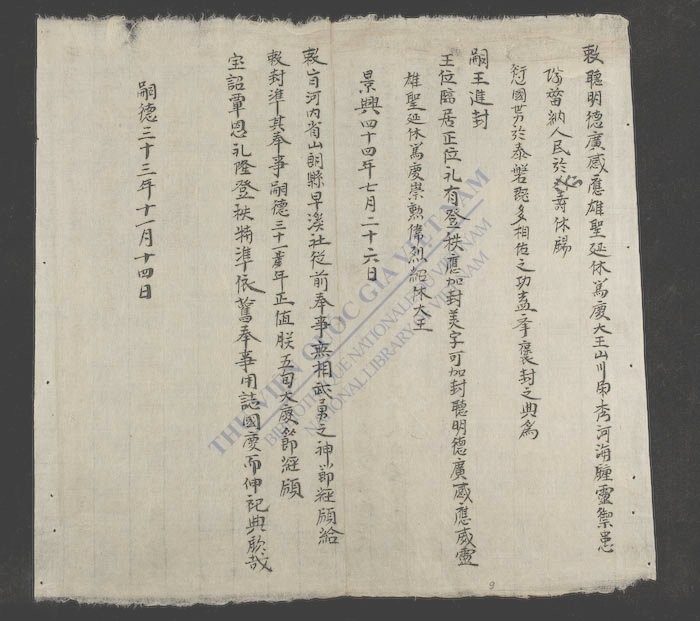 敕聰明德廣感應雄聖延休篤慶大王山川東秀河海鍾靈禦患
災納人民於壽休賜
國勢於泰磐既多相佑之功盍乎褒封之典為
嗣王進封
王位臨居正位礼有登秩應加封美字可加封聰明德廣感應威靈
雄聖延休篤慶崇勳偉烈紹休大王
景興四十四年七月二十六日
敕旨河內省山朗縣早溪社從前奉事無相武勇之神節經頒給
敕封準其奉事嗣德三十一年正值朕五旬大慶節經頒
宝詔覃恩礼隆登秩特準依舊奉事用誌國慶而伸記典欽哉
嗣德三十三年十一月十四日
THƯ VIỆN QUỐC GIA VIỆT NAM
BIBLIOTHÈQUE NATIONALE DU VIETNAM
NATIONAL LIBRARY OF VIETNAM
9